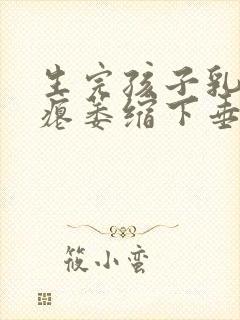 生完孩子乳
瘪萎缩下垂
筱小蛮